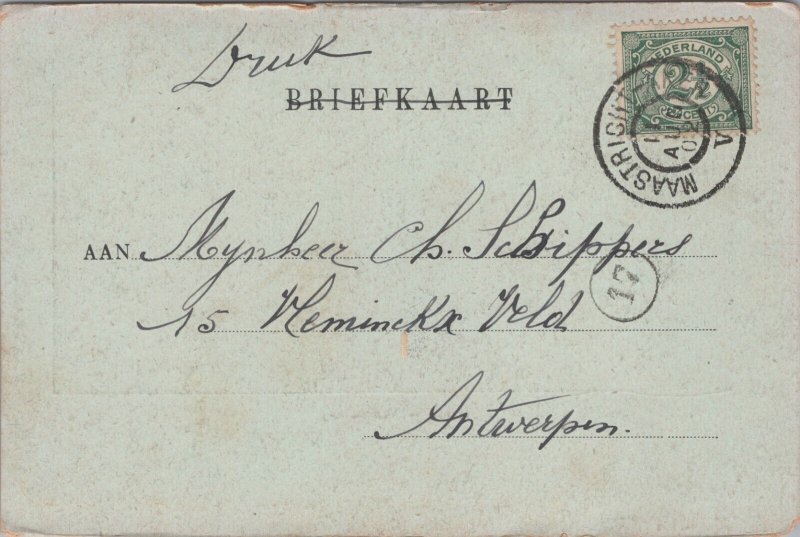 Druk
BRIEFKAART
NEDERLAND
2½
CENT
MAASTRICHT
AUG
02
V
AAN Mynheer Ch. Schippers
17
15 Kleminckx Veld
Antwerpen.